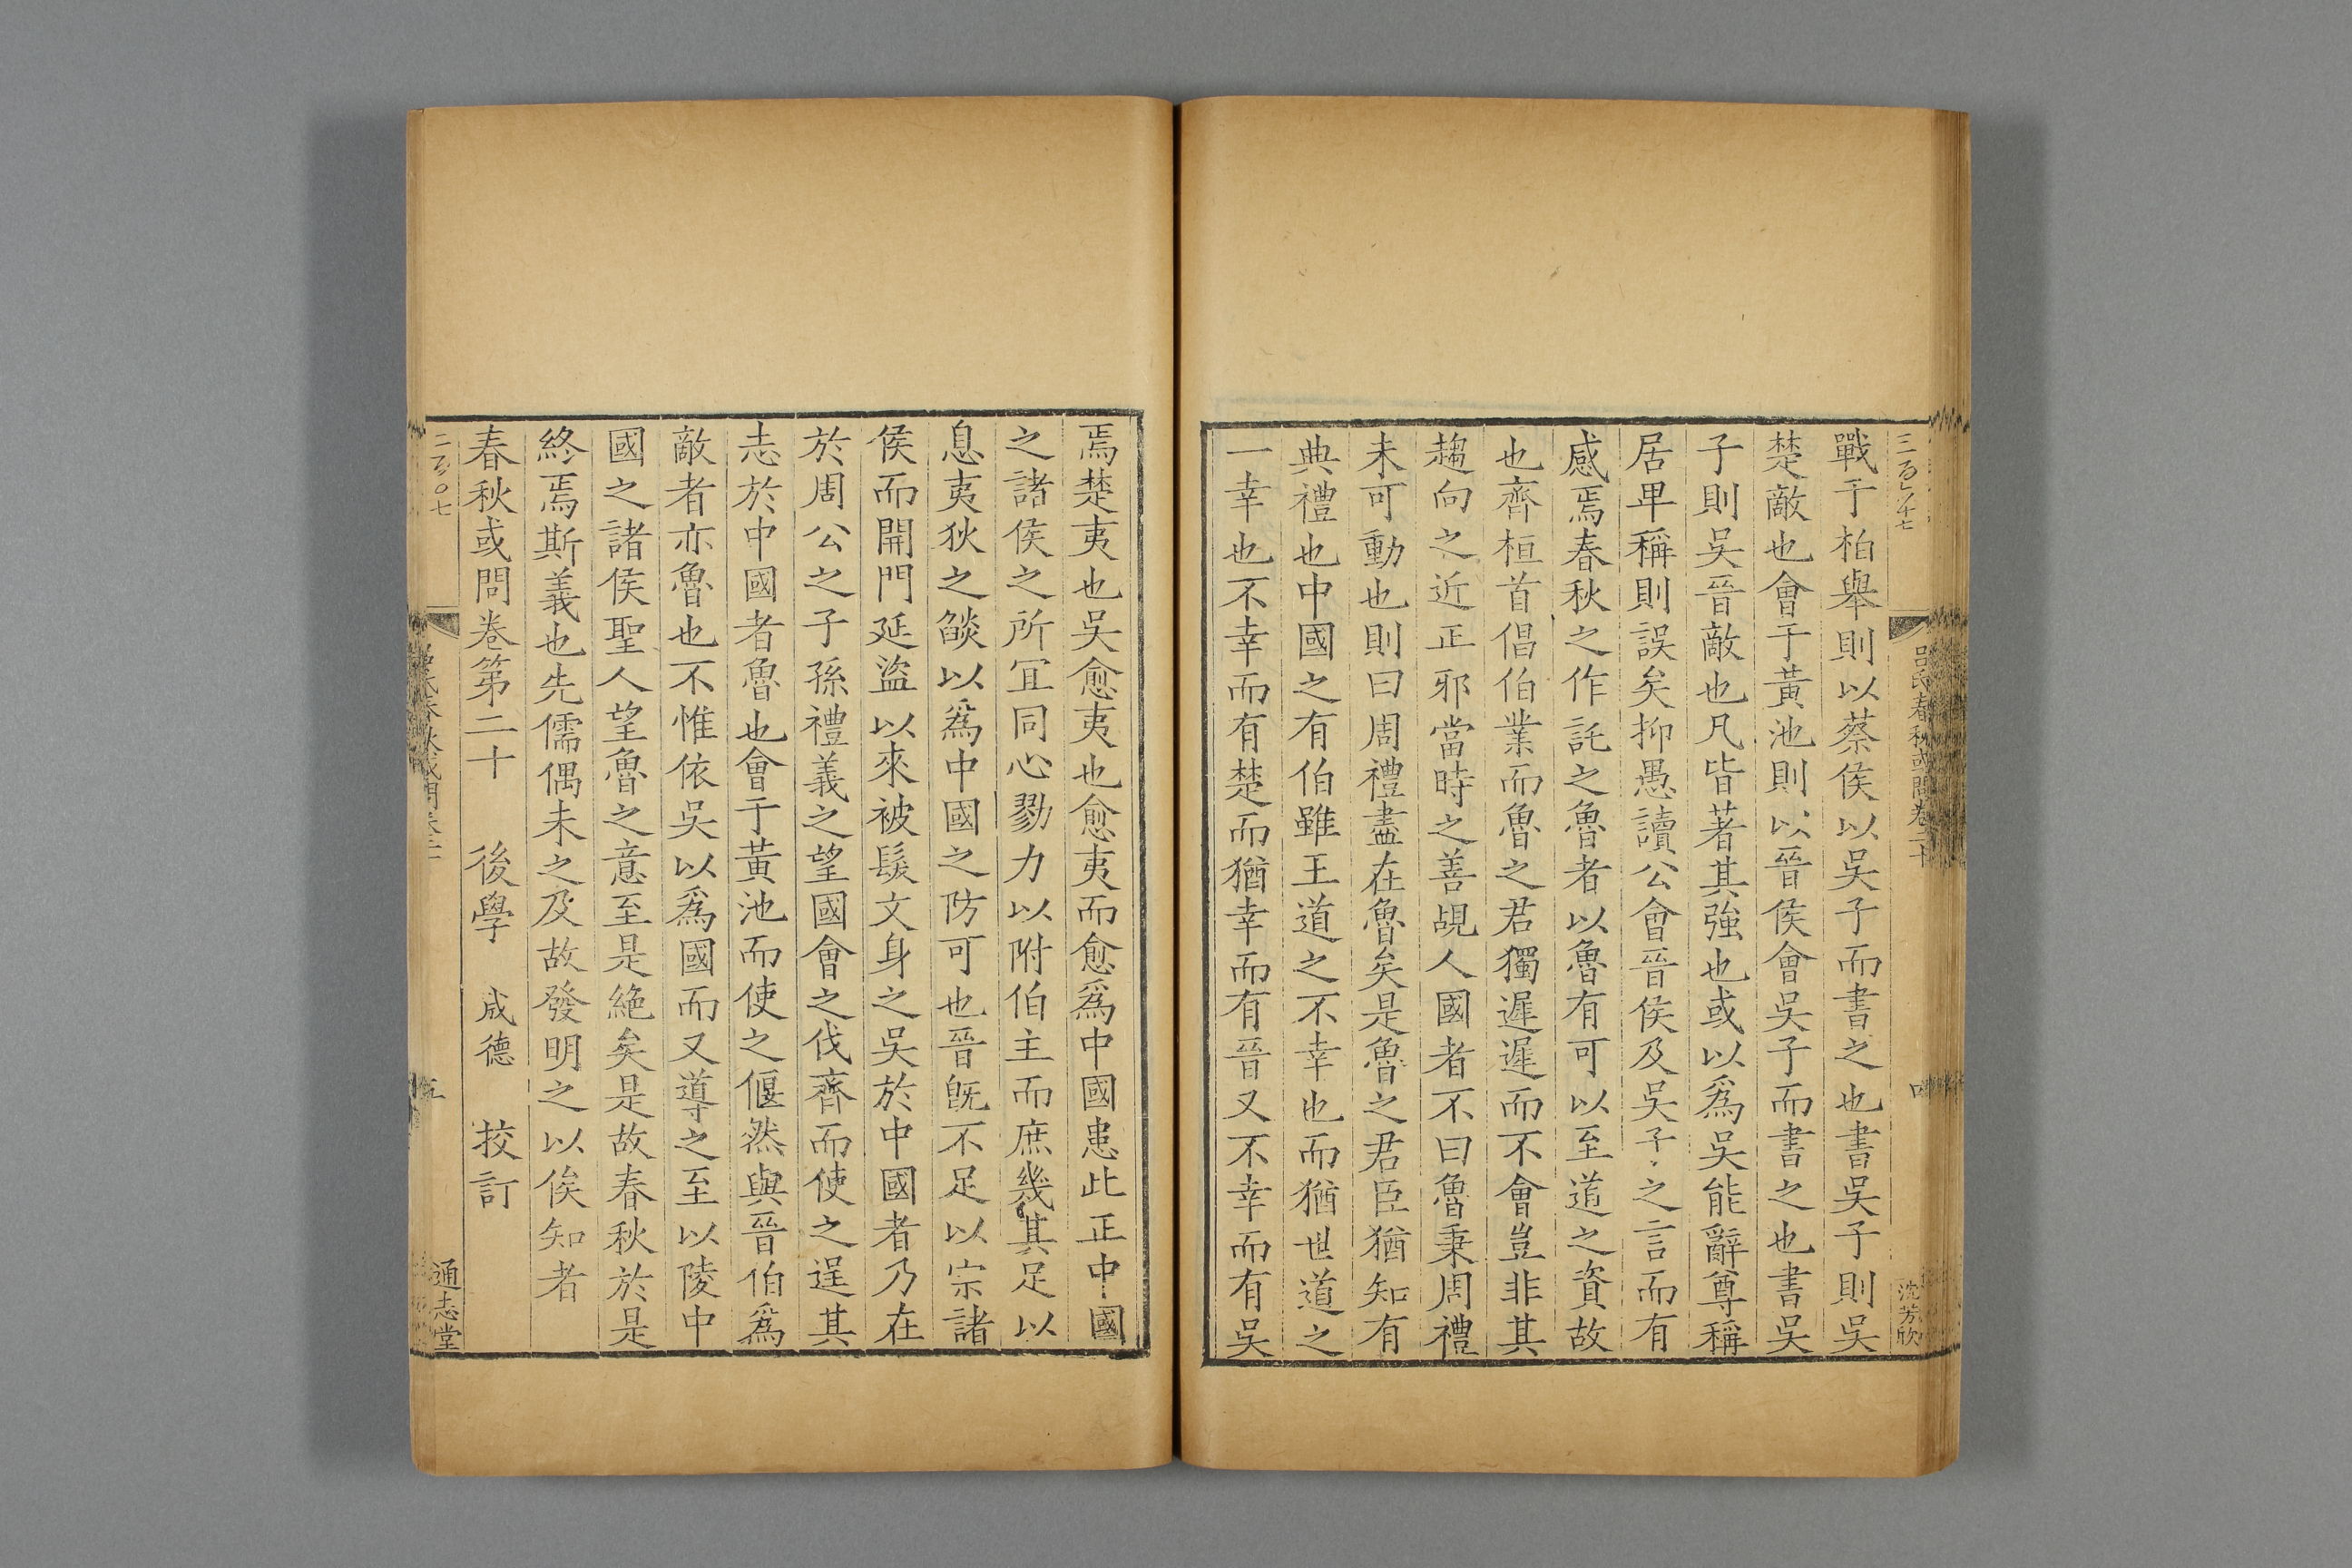 呂氏春秋或問卷二十
四
沈芳欣
戰于柏舉則以蔡侯以吳子而書之也書吳子則吳
楚敵也會于黃池則以晉侯會吳子而書之也書吳
子則吳晉敵也凡皆著其強也或以爲吳能辭尊稱
居卑稱則誤矣抑愚讀公會晉侯及吳子之言而有
感焉春秋之作託之魯者以魯有可以至道之資故
也齊桓首倡伯業而魯之君獨遲遲而不會豈非其
趨向之近正邪當時之善覘人國者不曰魯秉周禮
未可動也則曰周禮盡在魯矣是魯之君臣猶知有
典禮也中國之有伯雖王道之不幸也而猶世道之
一幸也不幸而有楚而猶幸而有晉又不幸而有吳
焉楚夷也吳愈夷也愈夷而愈爲中國患此正中國
之諸侯之所冝同心勠力以附伯主而庶幾其足以
息夷狄之燄以爲中國之防可也晉旣不足以宗諸
侯而開門延盜以來被髮文身之吳於中國者乃在
於周公之子孫禮義之望國會之伐齊而使之逞其
志於中國者魯也會于黃池而使之偃然與晉伯爲
敵者亦魯也不惟依吳以爲國而又導之至以陵中
國之諸侯聖人望魯之意至是絕矣是故春秋於是
終焉斯義也先儒偶未之及故發明之以俟知者
春秋或問卷第二十 後學 成德 挍訂
二百〇七
五
通志堂